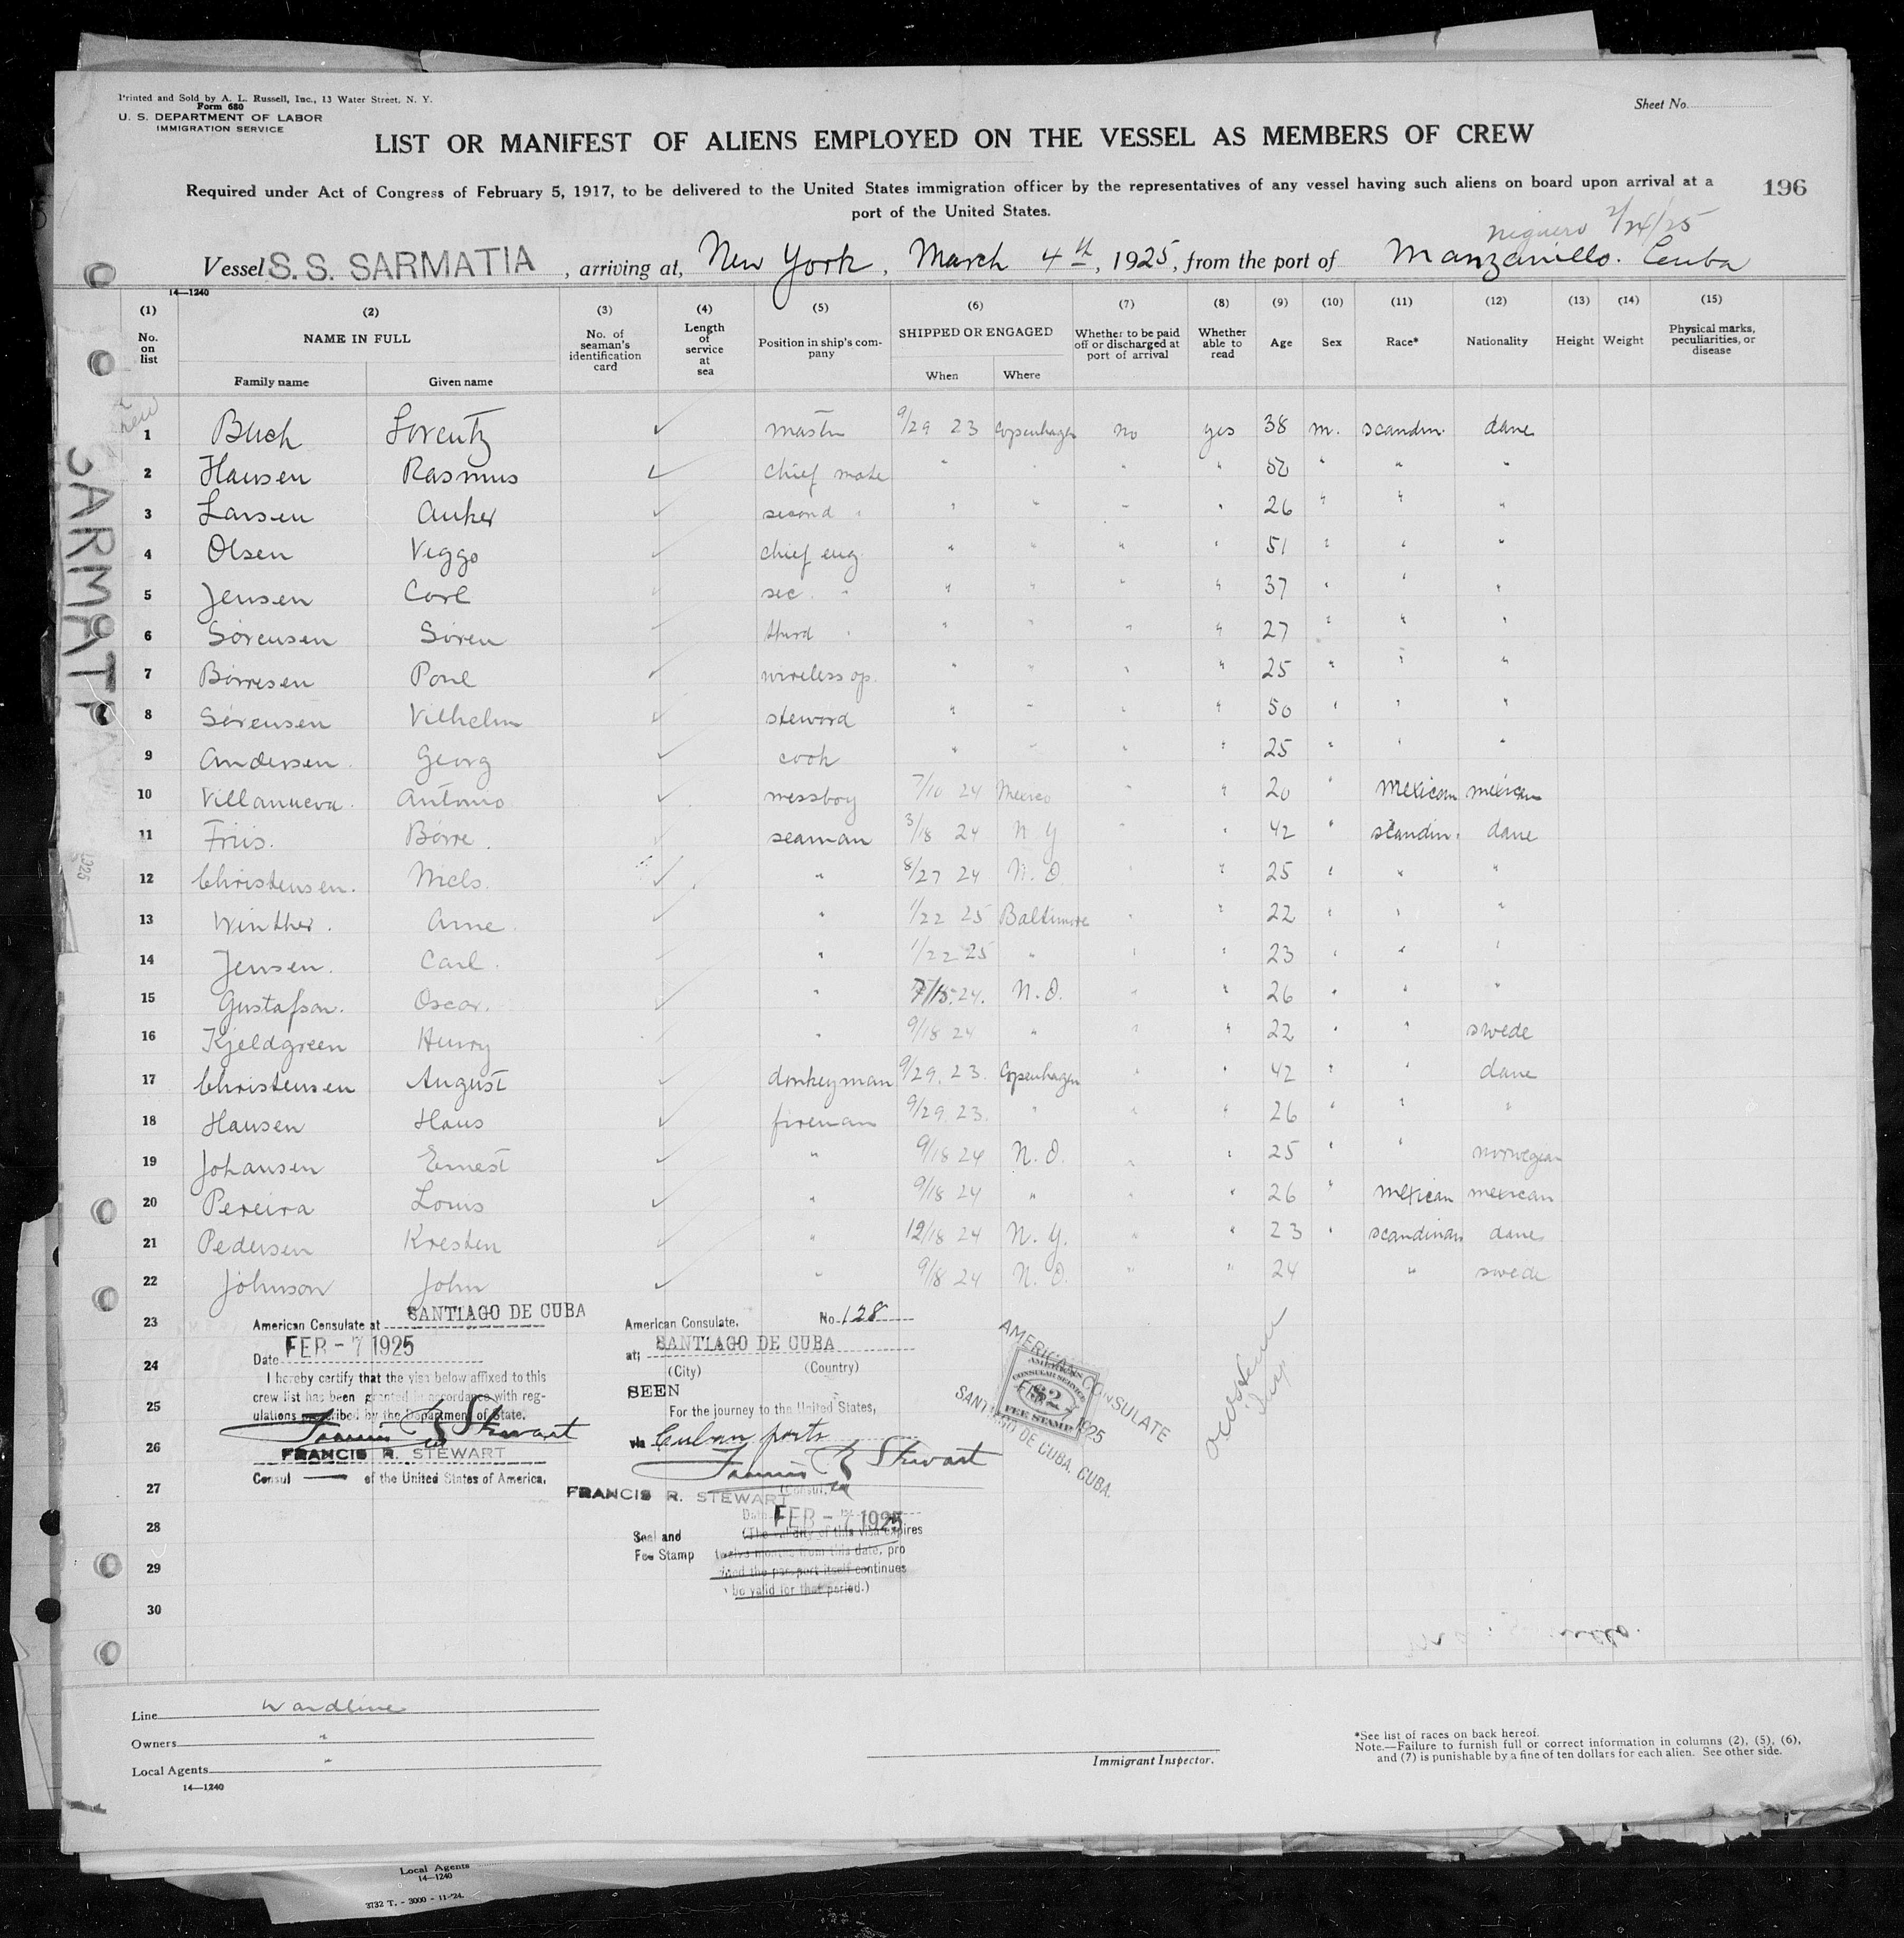 Printed and Sold by A. L. Russell, Inc., 13 Water Street, N. Y.
Form 680
U. S. DEPARTMENT OF LABOR
IMMIGRATION SERVICE
Sheet No.
LIST OR MANIFEST OF ALIENS EMPLOYED ON THE VESSEL AS MEMBERS OF CREW
Required under Act of Congress of February 5, 1917, to be delivered to the United States immigration officer by the representatives of any vessel having such aliens on board upon arrival at a
port of the United States.
196
2/24/25
Vessel S. S. SARMATIA, arriving at, New York, March 4th, 1925, from the port of Manzanillo. Cuba
14—1240
(1) (2) (3) (4) (5) (6) (7) (8) (9) (10) (11) (12) (13) (14) (15)
No. on list NAME IN FULL Family name Given name No. of seaman's identification card Length of service at sea Position in ship's company SHIPPED OR ENGAGED When Where Whether to be paid off or discharged at port of arrival Whether able to read Age Sex Race* Nationality Height Weight Physical marks, peculiarities, or disease
1 Buch Lorentz ✓ master 9/29 23 Copenhagen no yes 38 m. scandin. dane
2 Hansen Rasmus ✓ chief mate " " " " 50 " " "
3 Larsen Anker ✓ second " " " " " 26 " " "
4 Olsen Viggo ✓ chief eng. " " " " 51 " " "
5 Jensen Carl ✓ sec. " " " " " 37 " " "
6 Sørensen Søren ✓ third " " " " " 27 " " "
7 Børresen Poul ✓ wireless op. " " " " 25 " " "
8 Sørensen Vilhelm ✓ steward " " " " 50 " " "
9 Andersen. Georg ✓ cook " " " " 25 " " "
10 Villanueva. Antonio ✓ messboy 7/10 24 Mexico " " 20 " mexican mexican
11 Friis. Børre. ✓ seaman 3/18 24 N Y " " 42 " scandin. dane
12 Christensen. Niels. ✓ " 8/27 24 N. O. " " 25 " " "
13 Winther. Arne. ✓ " 1/22 25 Baltimore " " 22 " " "
14 Jensen. Carl. ✓ " 1/22 25 " " " 23 " " "
15 Gustafson. Oscar. ✓ " 7/15. 24. N. O. " " 26 " " "
16 Kjeldgreen Henry ✓ " 9/18 24 " " " 22 " " swede
17 Christensen August ✓ donkeyman 9/29. 23. Copenhagen " " 42 " " dane
18 Hansen Hans ✓ fireman 9/29. 23. " " " 26 " " "
19 Johansen Ernest ✓ " 9/18 24 N. O. " " 25 " " norwegian
20 Pereira Louis ✓ " 9/18 24 " " " 26 " mexican mexican
21 Pedersen Kresten ✓ " 12/18 24 N. Y. " " 23 " scandinav dane
22 Johnson John ✓ " 9/18 24 N. O. " " 24 " swede
23
24
25
26
27
28
29
30
American Consulate at SANTIAGO DE CUBA
Date FEB - 7 1925
I hereby certify that the visa below affixed to this
crew list has been granted in accordance with reg-
ulations prescribed by the Department of State.
Francis R Stewart
FRANCIS R. STEWART
Consul of the United States of America.
American Consulate. No. 128
at; SANTIAGO DE CUBA
(City) (Country)
SEEN
For the journey to the United States,
via Cuban ports
Francis R Stewart
(Consul)
FRANCIS R. STEWART
Date FEB - 7 1925
Seal and
Fee Stamp
(The validity of this visa expires
twelve months from this date, pro
vided the passport itself continues
be valid for that period.)
AMERICAN CONSULATE
AMERICAN
CONSULAR SERVICE
$2
FEE STAMP
FEB - 7 1925
SANTIAGO DE CUBA, CUBA.
SARMATIA
1925
Line Wardline
Owners "
Local Agents "
14—1240
Immigrant Inspector.
*See list of races on back hereof.
Note.—Failure to furnish full or correct information in columns (2), (5), (6),
and (7) is punishable by a fine of ten dollars for each alien. See other side.
Local Agents
14—1240
3732 T. - 3000 - 11-'24.